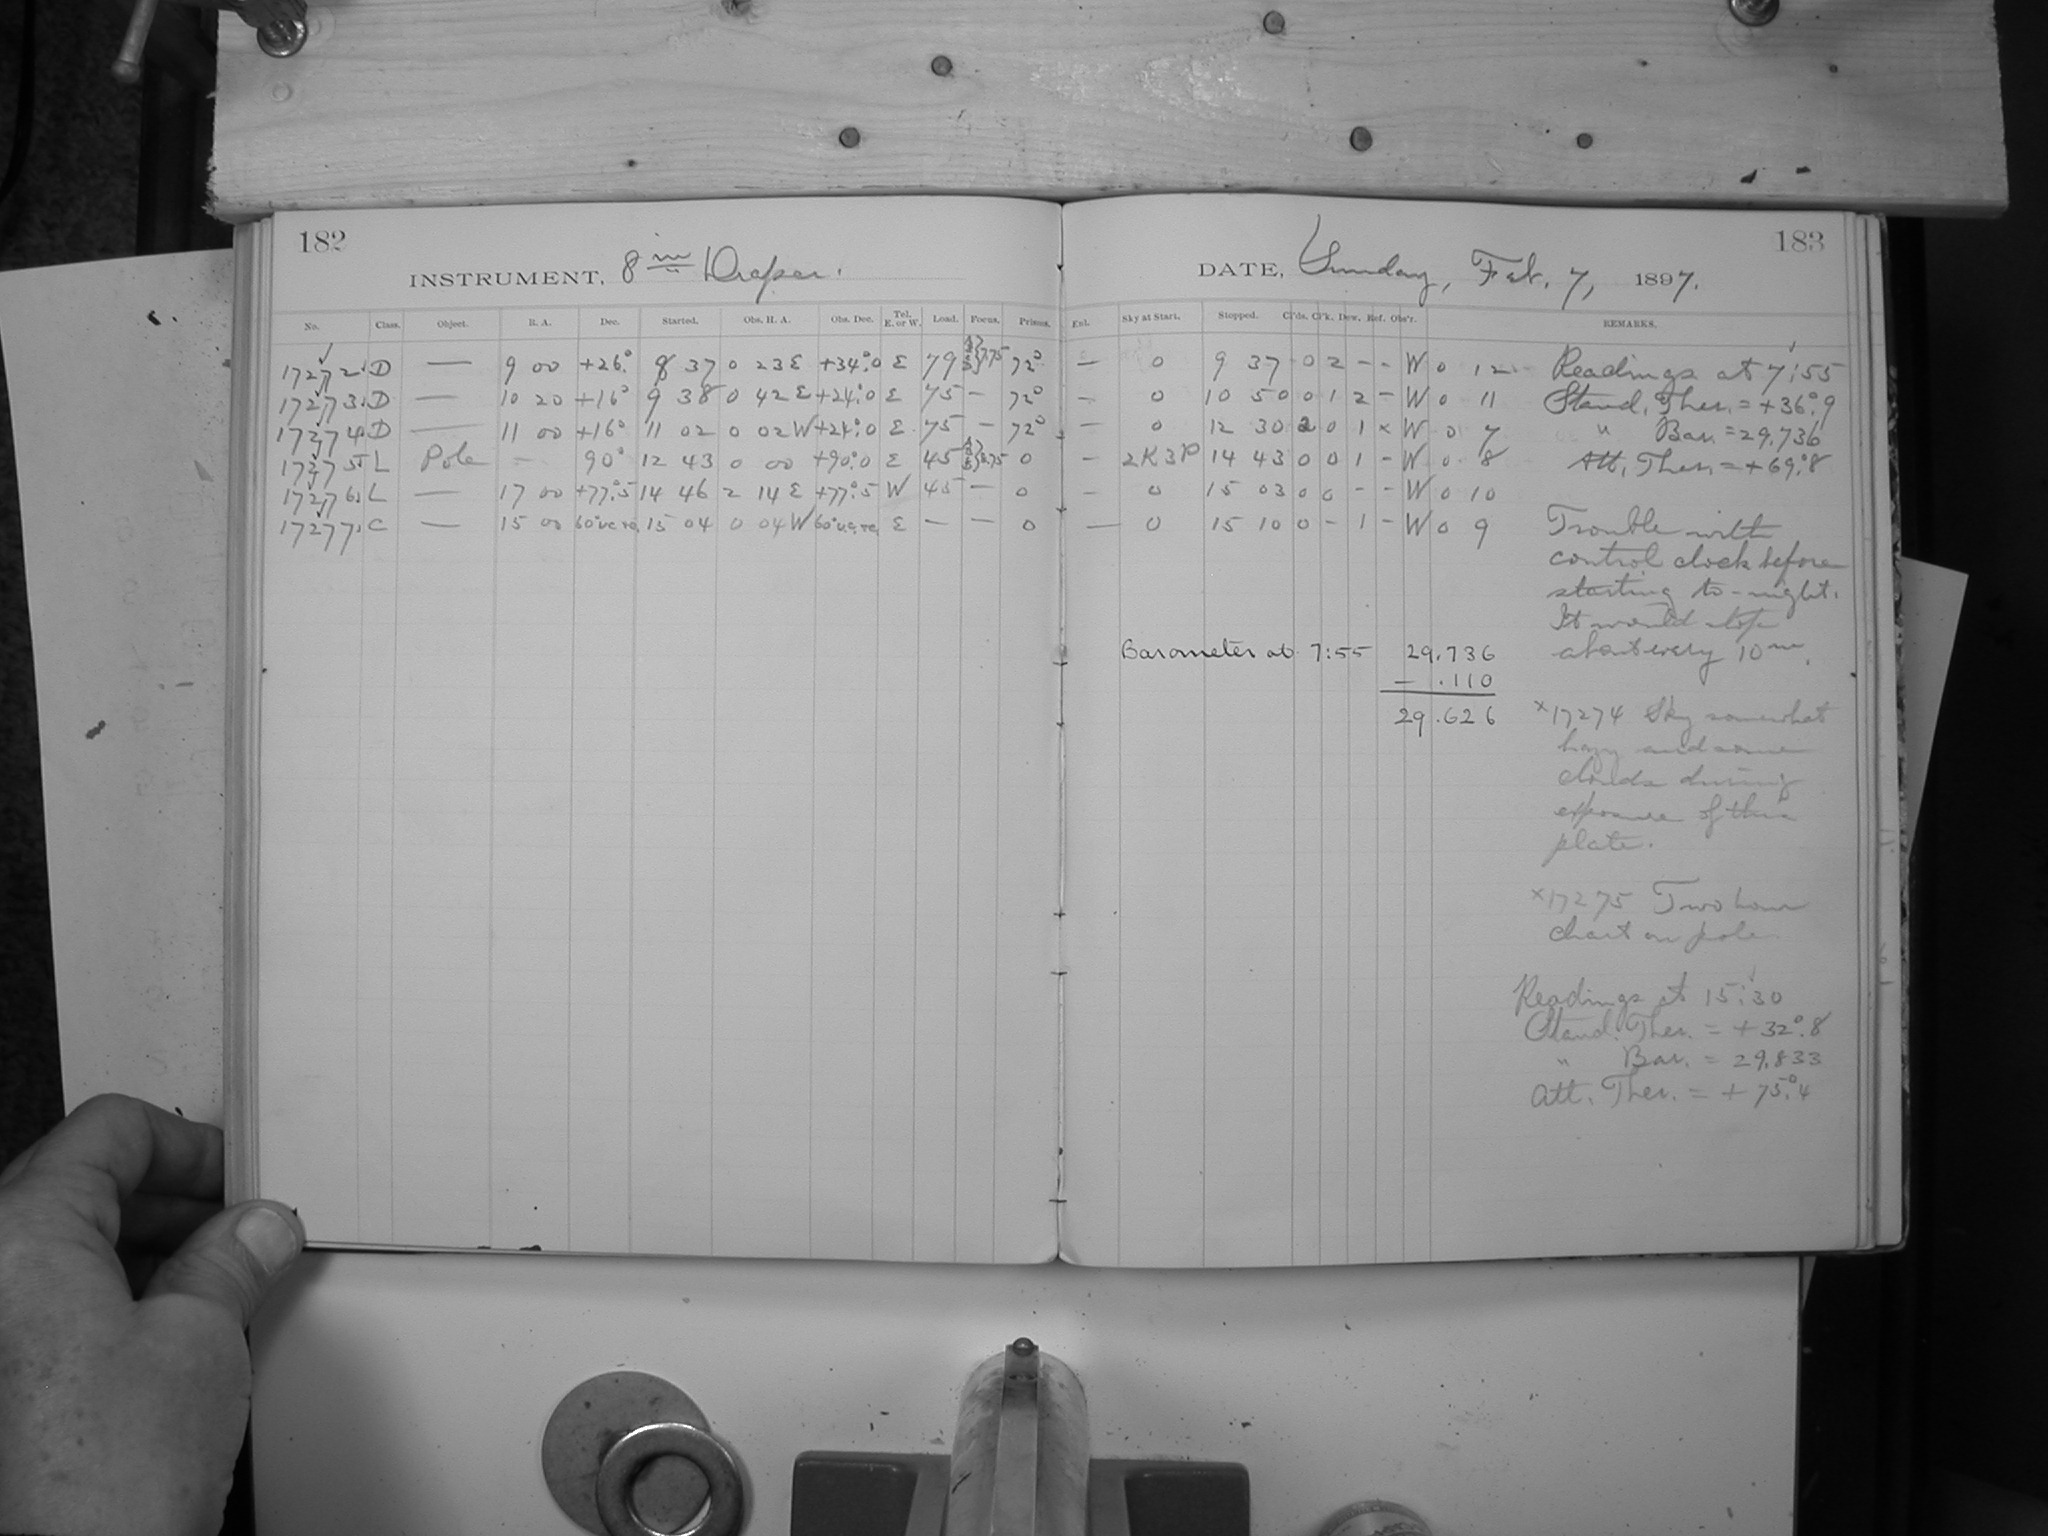 182
INSTRUMENT, 8 in Draper.
No. Class. Object. R. A. Dec. Started. Obs. H. A. Obs. Dec. Tel. E. or W. Load. Focus. Prisms.
17272 D — 9 00 +26° 8 37 0 23 E +34°.0 E 79 7.75 72°
17273 D — 10 20 +16° 9 38 0 42 E +24°.0 E 75 — 72°
17274 D — 11 00 +16° 11 02 0 02 W +24°.0 E 75 — 72°
17275 L Pole — 90° 12 43 0 00 +90°.0 E 45 0
17276 L — 17 00 +77°.5 14 46 2 14 E +77°.5 W 45 — 0
17277 C — 15 00 15 04 0 04 W E — — 0
183
DATE, Sunday, Feb. 7, 1897.
Ext. Sky at Start. Stopped. Cl'ds. Cl'k. Dew. Ref. Obs'r. REMARKS.
— 0 9 37 0 2 – – W 0 12
— 0 10 50 0 1 2 – W 0 11
— 0 12 30 2 0 1 × W 0 7
– 2K3P 14 43 0 0 1 – W 0 8
– 0 15 03 0 0 – – W 0 10
— 0 15 10 0 – 1 – W 0 9
Barometer at 7:55 29.736
– .110
29.626
Readings at 7:55
Stand. Ther. = +36°.9
" Bar. = 29.736
Att. Ther. = +69°.8
Trouble with
control clock before
starting to-night.
It would stop
about every 10 m.
×17274 Sky somewhat
hazy and some
clouds during
exposure of this
plate.
×17275 Two hour
chart on pole
Readings at 15:30
Stand. Ther. = +32°.8
" Bar. = 29.833
Att. Ther. = +75°.4